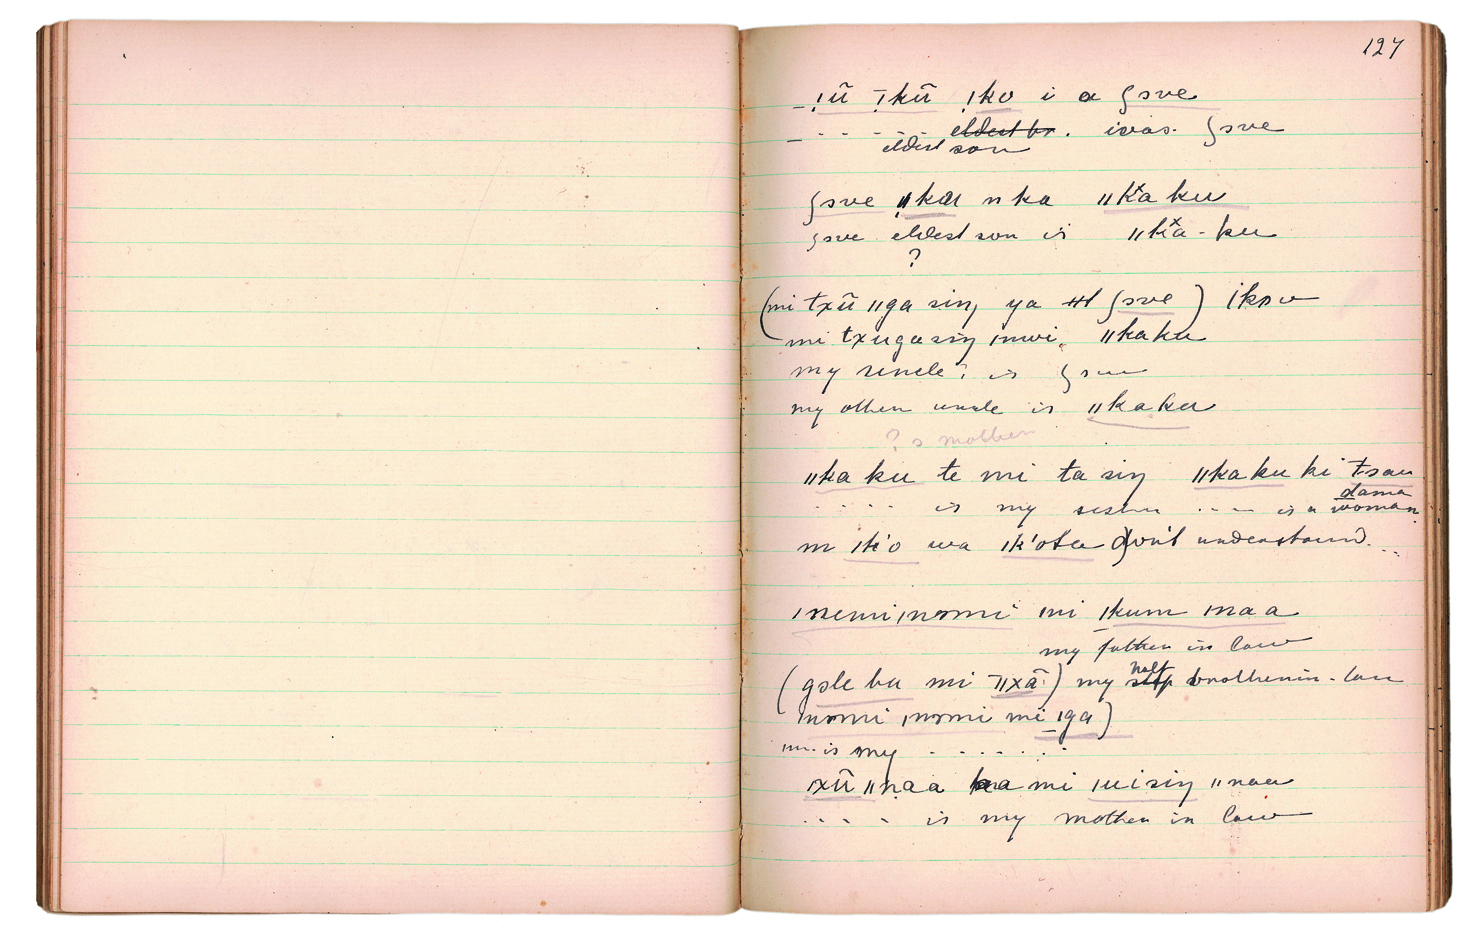 127
ǃũ ꞮkŨ ǃko i a ʃsve
eldest br. was. ʃsve
eldest son
ʃsve ǁkau n ka ǁkˣa ku
ʃsve eldest son is ǁkˣa - ku
?
(mi txũ ǁga siŋ ya ʃsve)
mi txugasiŋ ǀnwi, ǁkaku
my uncle? is
my other uncle is ǁkaku
? s mother
ǁka ku te mi ta siŋ ǁkaku ki tsau
is my sister . . . . is a dama woman
m ǀk'o wa ǀk'ota don't understand. . .
ǀnemiǀnomi mi ǀkum ǀnaa
my father in law
(gole ba mi ǁxã) my half step brotherin-law
nomi ǀnomi mi ǀga)
is my . . . . . .
xũ ǁnaa ka mi ǀuisiŋ ǁnaa
. . . . is my mother in law